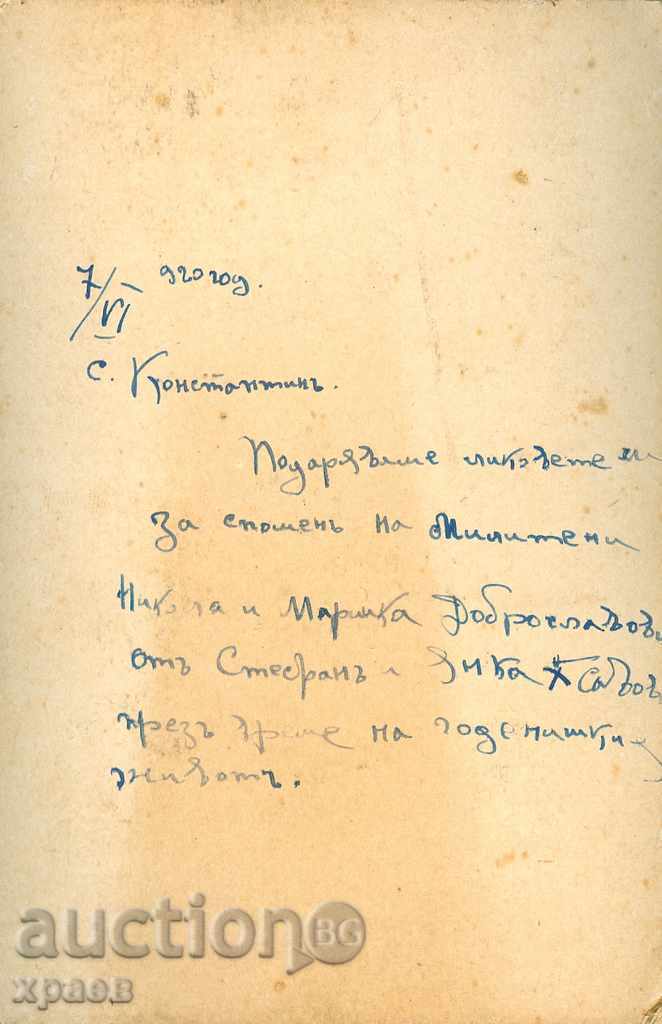 7/VI 920 год.
с. Константинъ.
Подаряваме ликовете си
за споменъ на Милитени
Никола и Марийка Доброславови
отъ Стефанъ и Янка
презъ време на годенишкия
животъ.
auctionBG
храев